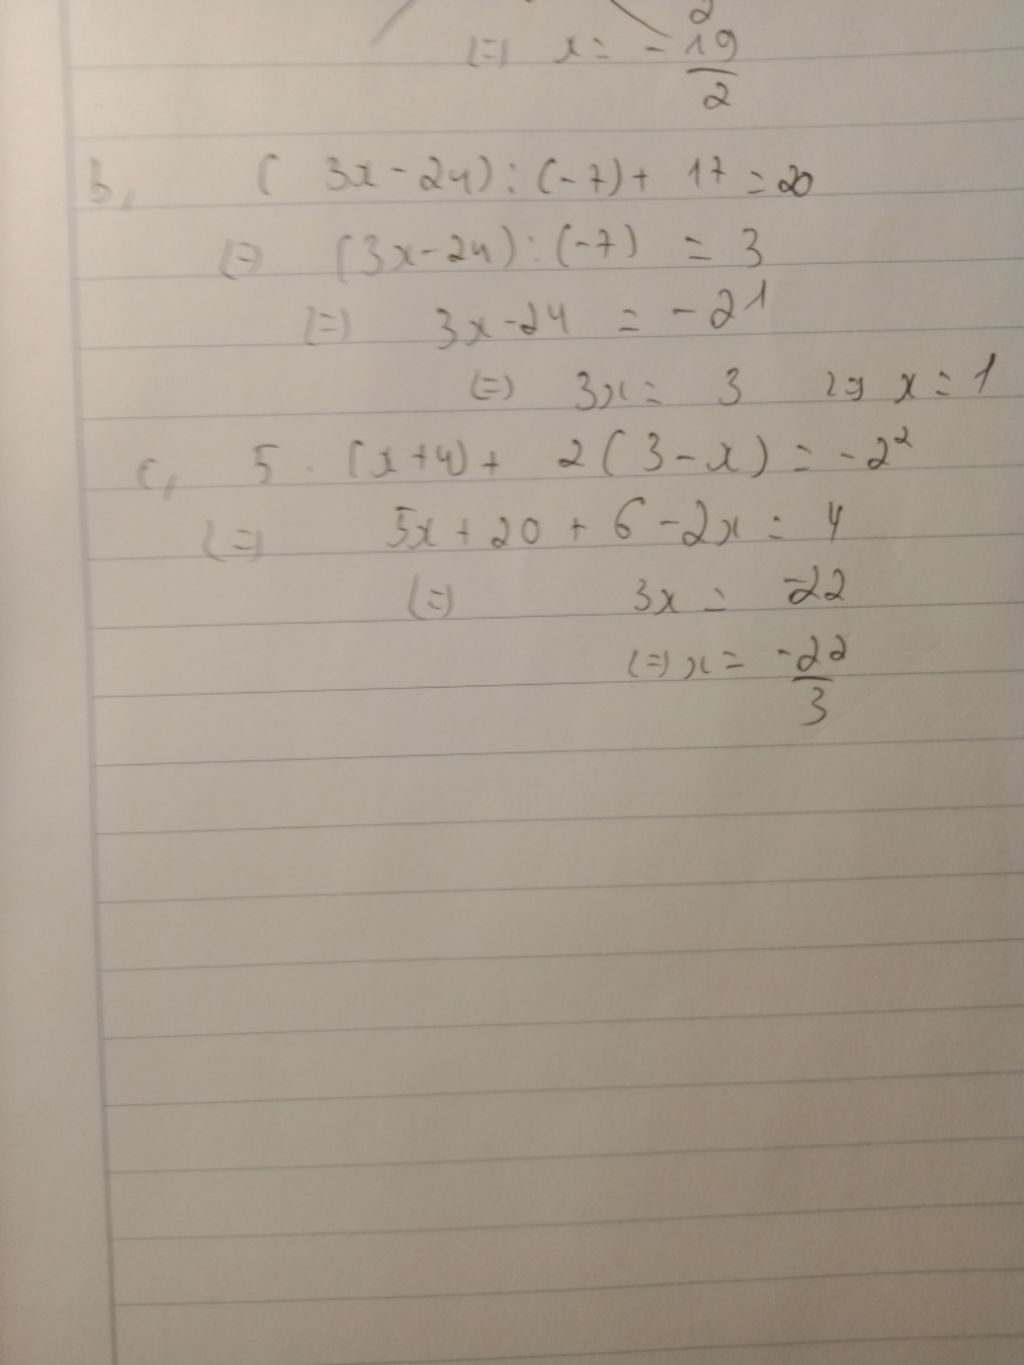 2
(=) x = - 19/2
b, (3x - 24) : (-7) + 17 = 20
(=) (3x - 24) : (-7) = 3
(=) 3x - 24 = -21
(=) 3x = 3 (=) x = 1
c, 5 . (x + 4) + 2(3 - x) = -2²
(=) 5x + 20 + 6 - 2x = 4
(=) 3x = -22
(=) x = -22/3